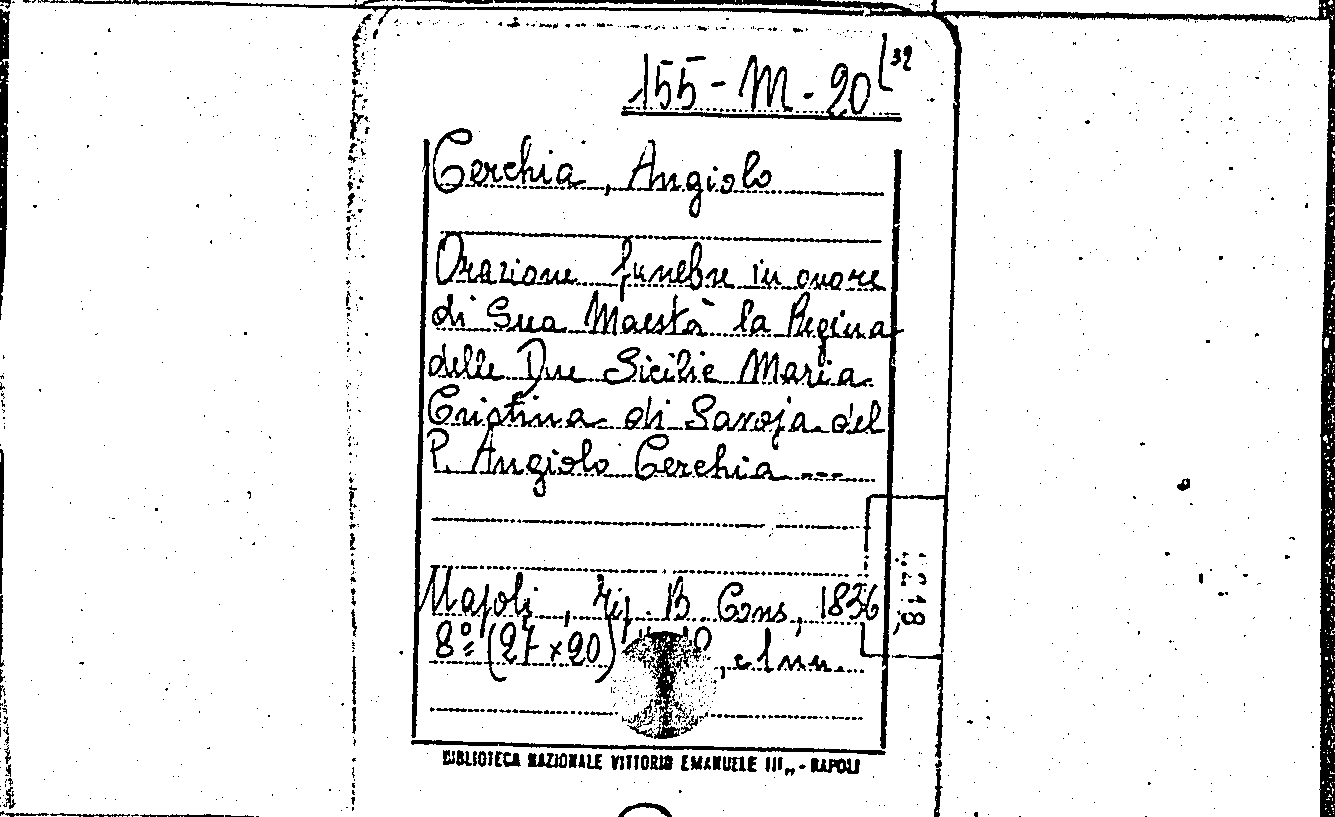 155-M-20(32
Cerchia, Angiolo
Orazione funebre in onore
di Sua Maestà la Regina
delle Due Sicilie Maria
Cristina di Savoja del
P. Angiolo Cerchia ---
Napoli, Tip. B. Cons, 1836
8º (27 x 20) , e 1 nn.
BIBLIOTECA NAZIONALE VITTORIO EMANUELE III,, - NAPOLI